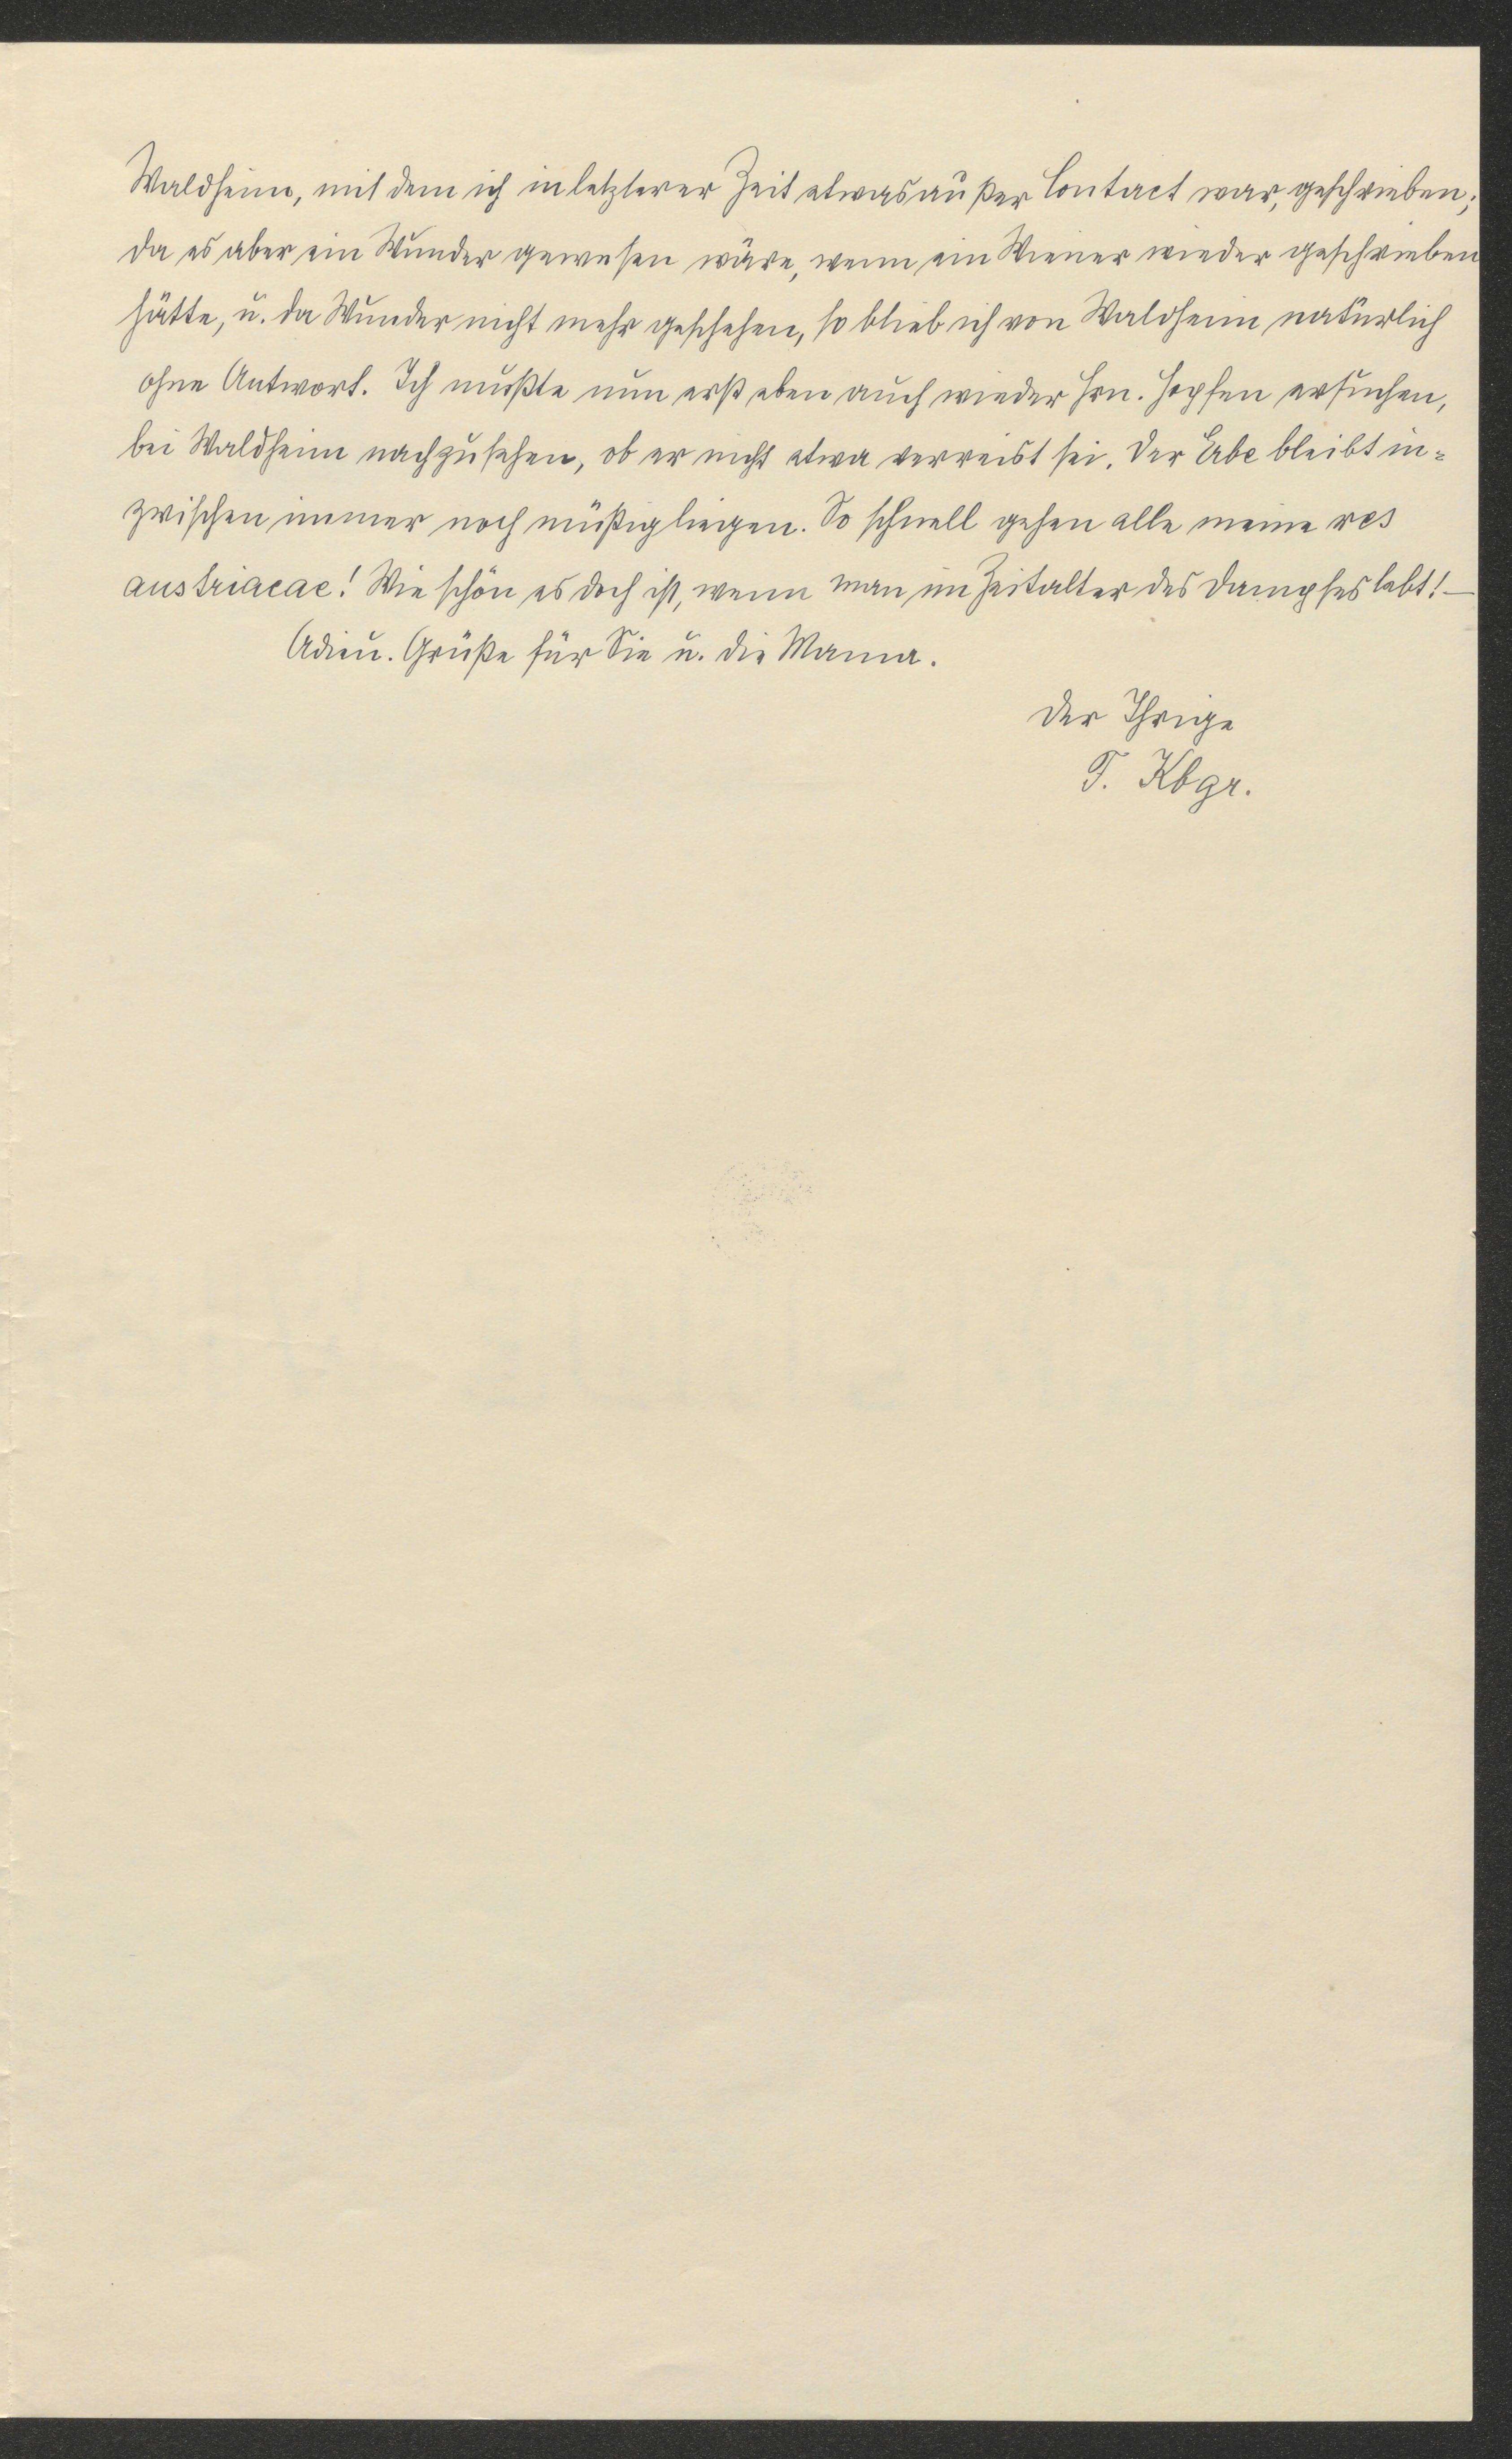 Waldheim, mit dem ich in letzterer Zeit etwas außer Contact war, geschrieben;
da es aber ein Wunder gewesen wäre, wenn ein Wiener wieder geschrieben
hätte, u. da Wunder nicht mehr geschehen, so blieb ich von Waldheim natürlich
ohne Antwort. Ich mußte nun erst eben auch wieder Hrn. Hopfen ersuchen,
bei Waldheim nachzusehen, ob er nicht etwa verreist sei. Der Erbe bleibt in-
zwischen immer noch müßig liegen. So schnell gehen alle meine res
austriacae! Wie schön es doch ist, wenn man im Zeitalter des Dampfes lebt! —
Adieu. Grüße für Sie u. die Mama.
Der Ihrige
F. Kbgr.